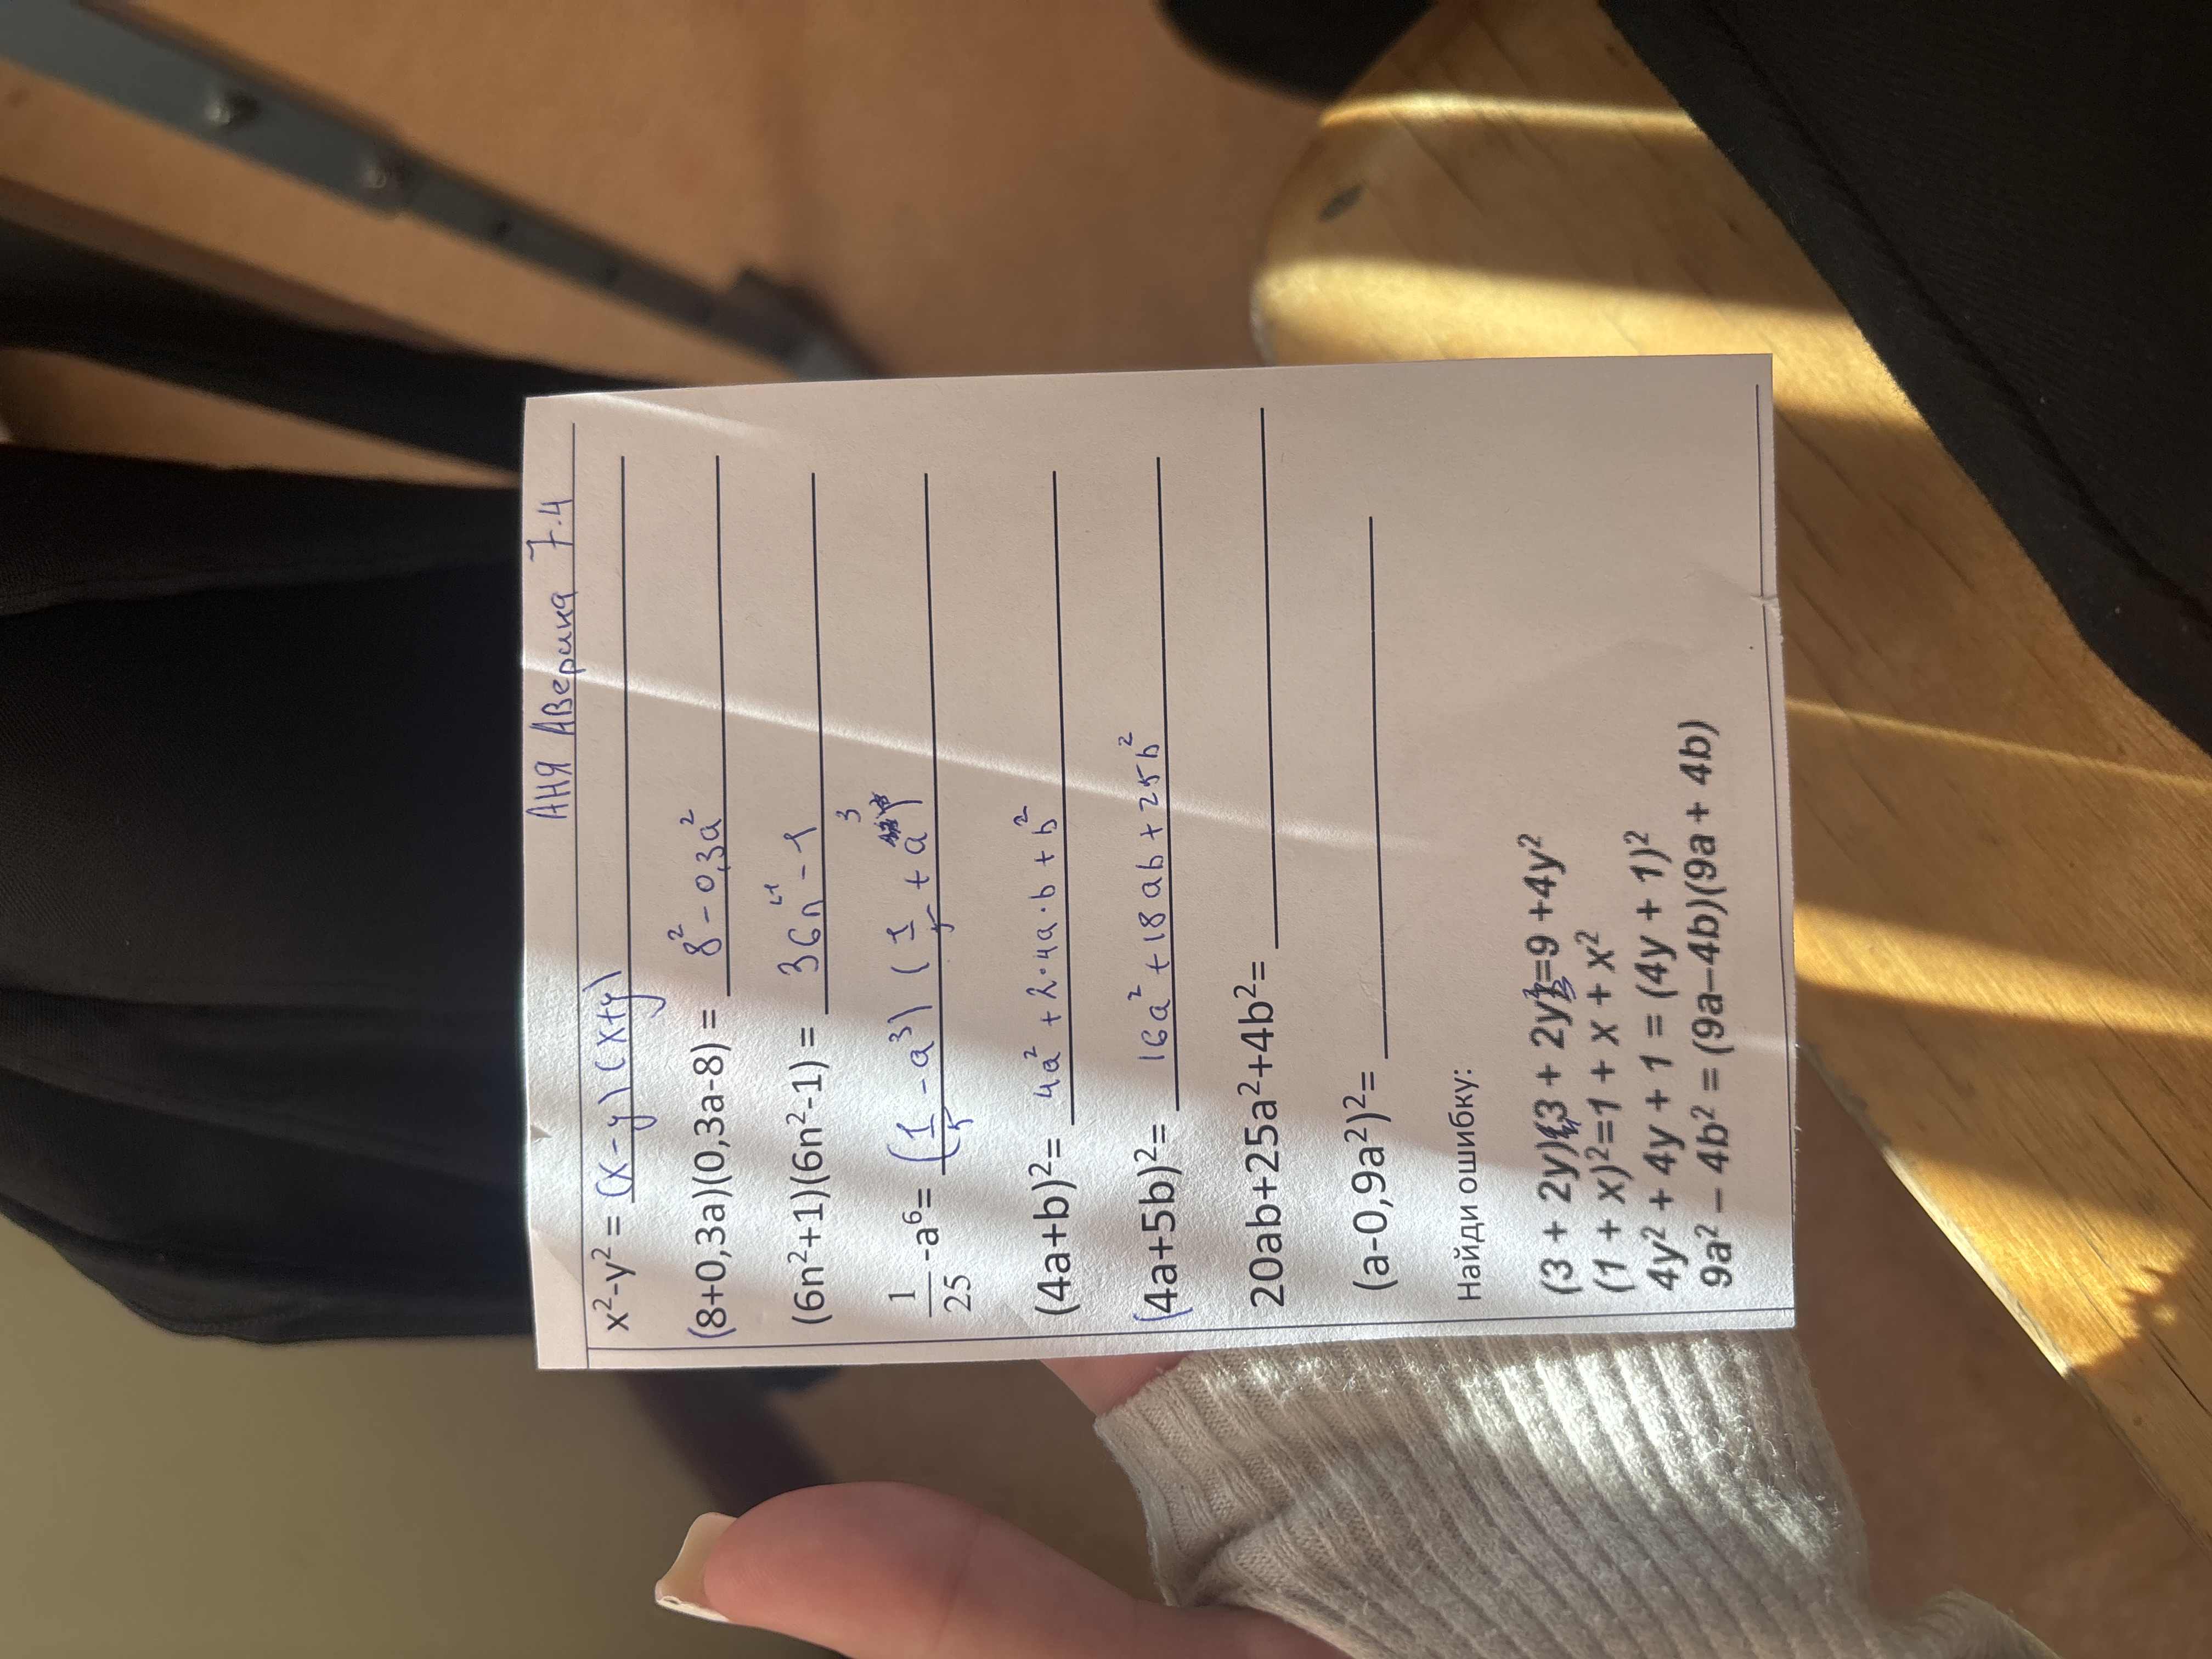 Аня Аверина 7.4
x²-y² = (x-y)(x+y)
(8+0,3a)(0,3a-8) = 8² - 0,3a²
(6n²+1)(6n²-1) = 36n⁴ - 1
1/25 -a⁶= (1/5 - a³) (1/5 + a³)
(4a+b)²= 4a² + 2·4a·b + b²
(4a+5b)²= 16a² + 18ab + 25b²
20ab+25a²+4b²=
(a-0,9a²)²=
Найди ошибку:
(3 + 2y)(3 + 2y)=9 +4y²
(1 + x)²=1 + x + x²
4y² + 4y + 1 = (4y + 1)²
9a² – 4b² = (9a–4b)(9a + 4b)